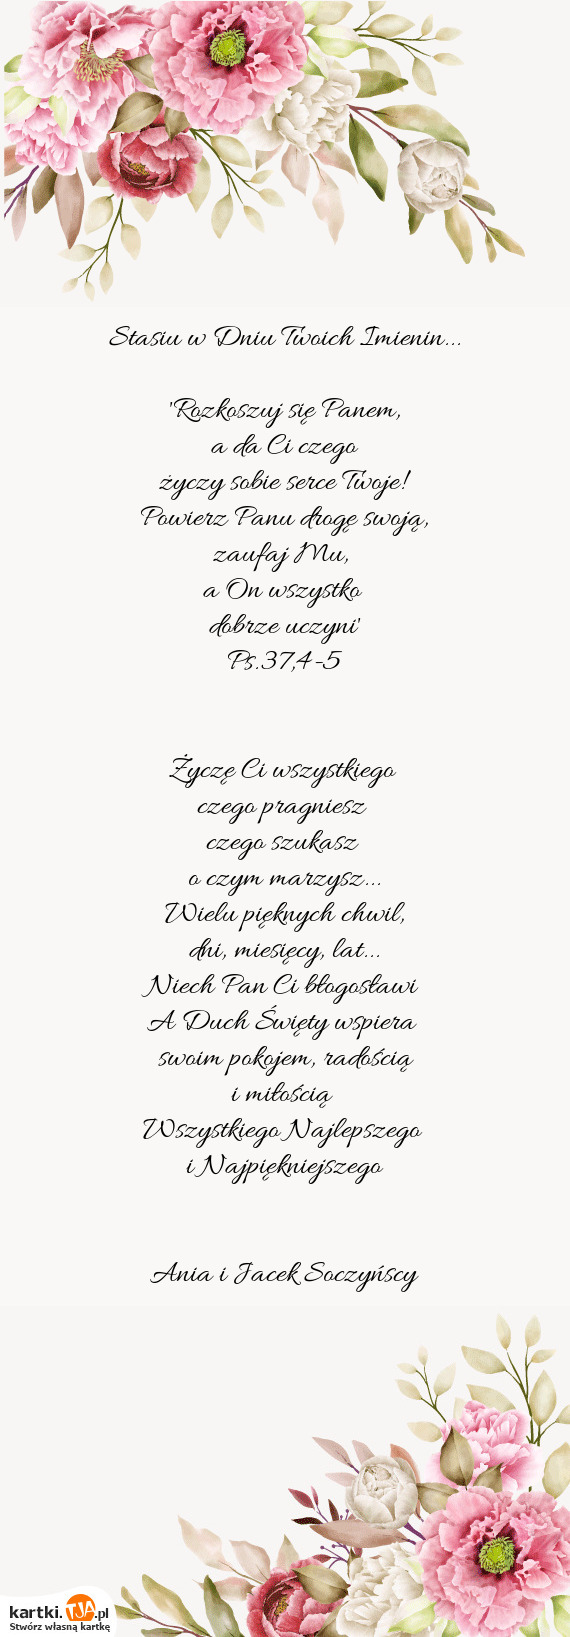 Stasiu w Dniu Twoich Imienin...
'Rozkoszuj się Panem,
a da Ci czego
życzy sobie serce Twoje!
Powierz Panu drogę swoją,
zaufaj Mu,
a On wszystko
dobrze uczyni'
Ps.37,4-5
Życzę Ci wszystkiego
czego pragniesz
czego szukasz
o czym marzysz...
Wielu pięknych chwil,
dni, miesięcy, lat...
Niech Pan Ci błogosławi
A Duch Święty wspiera
swoim pokojem, radością
i miłością
Wszystkiego Najlepszego
i Najpiękniejszego
Ania i Jacek Soczyńscy
kartki.TJA.pl
Stwórz własną kartkę